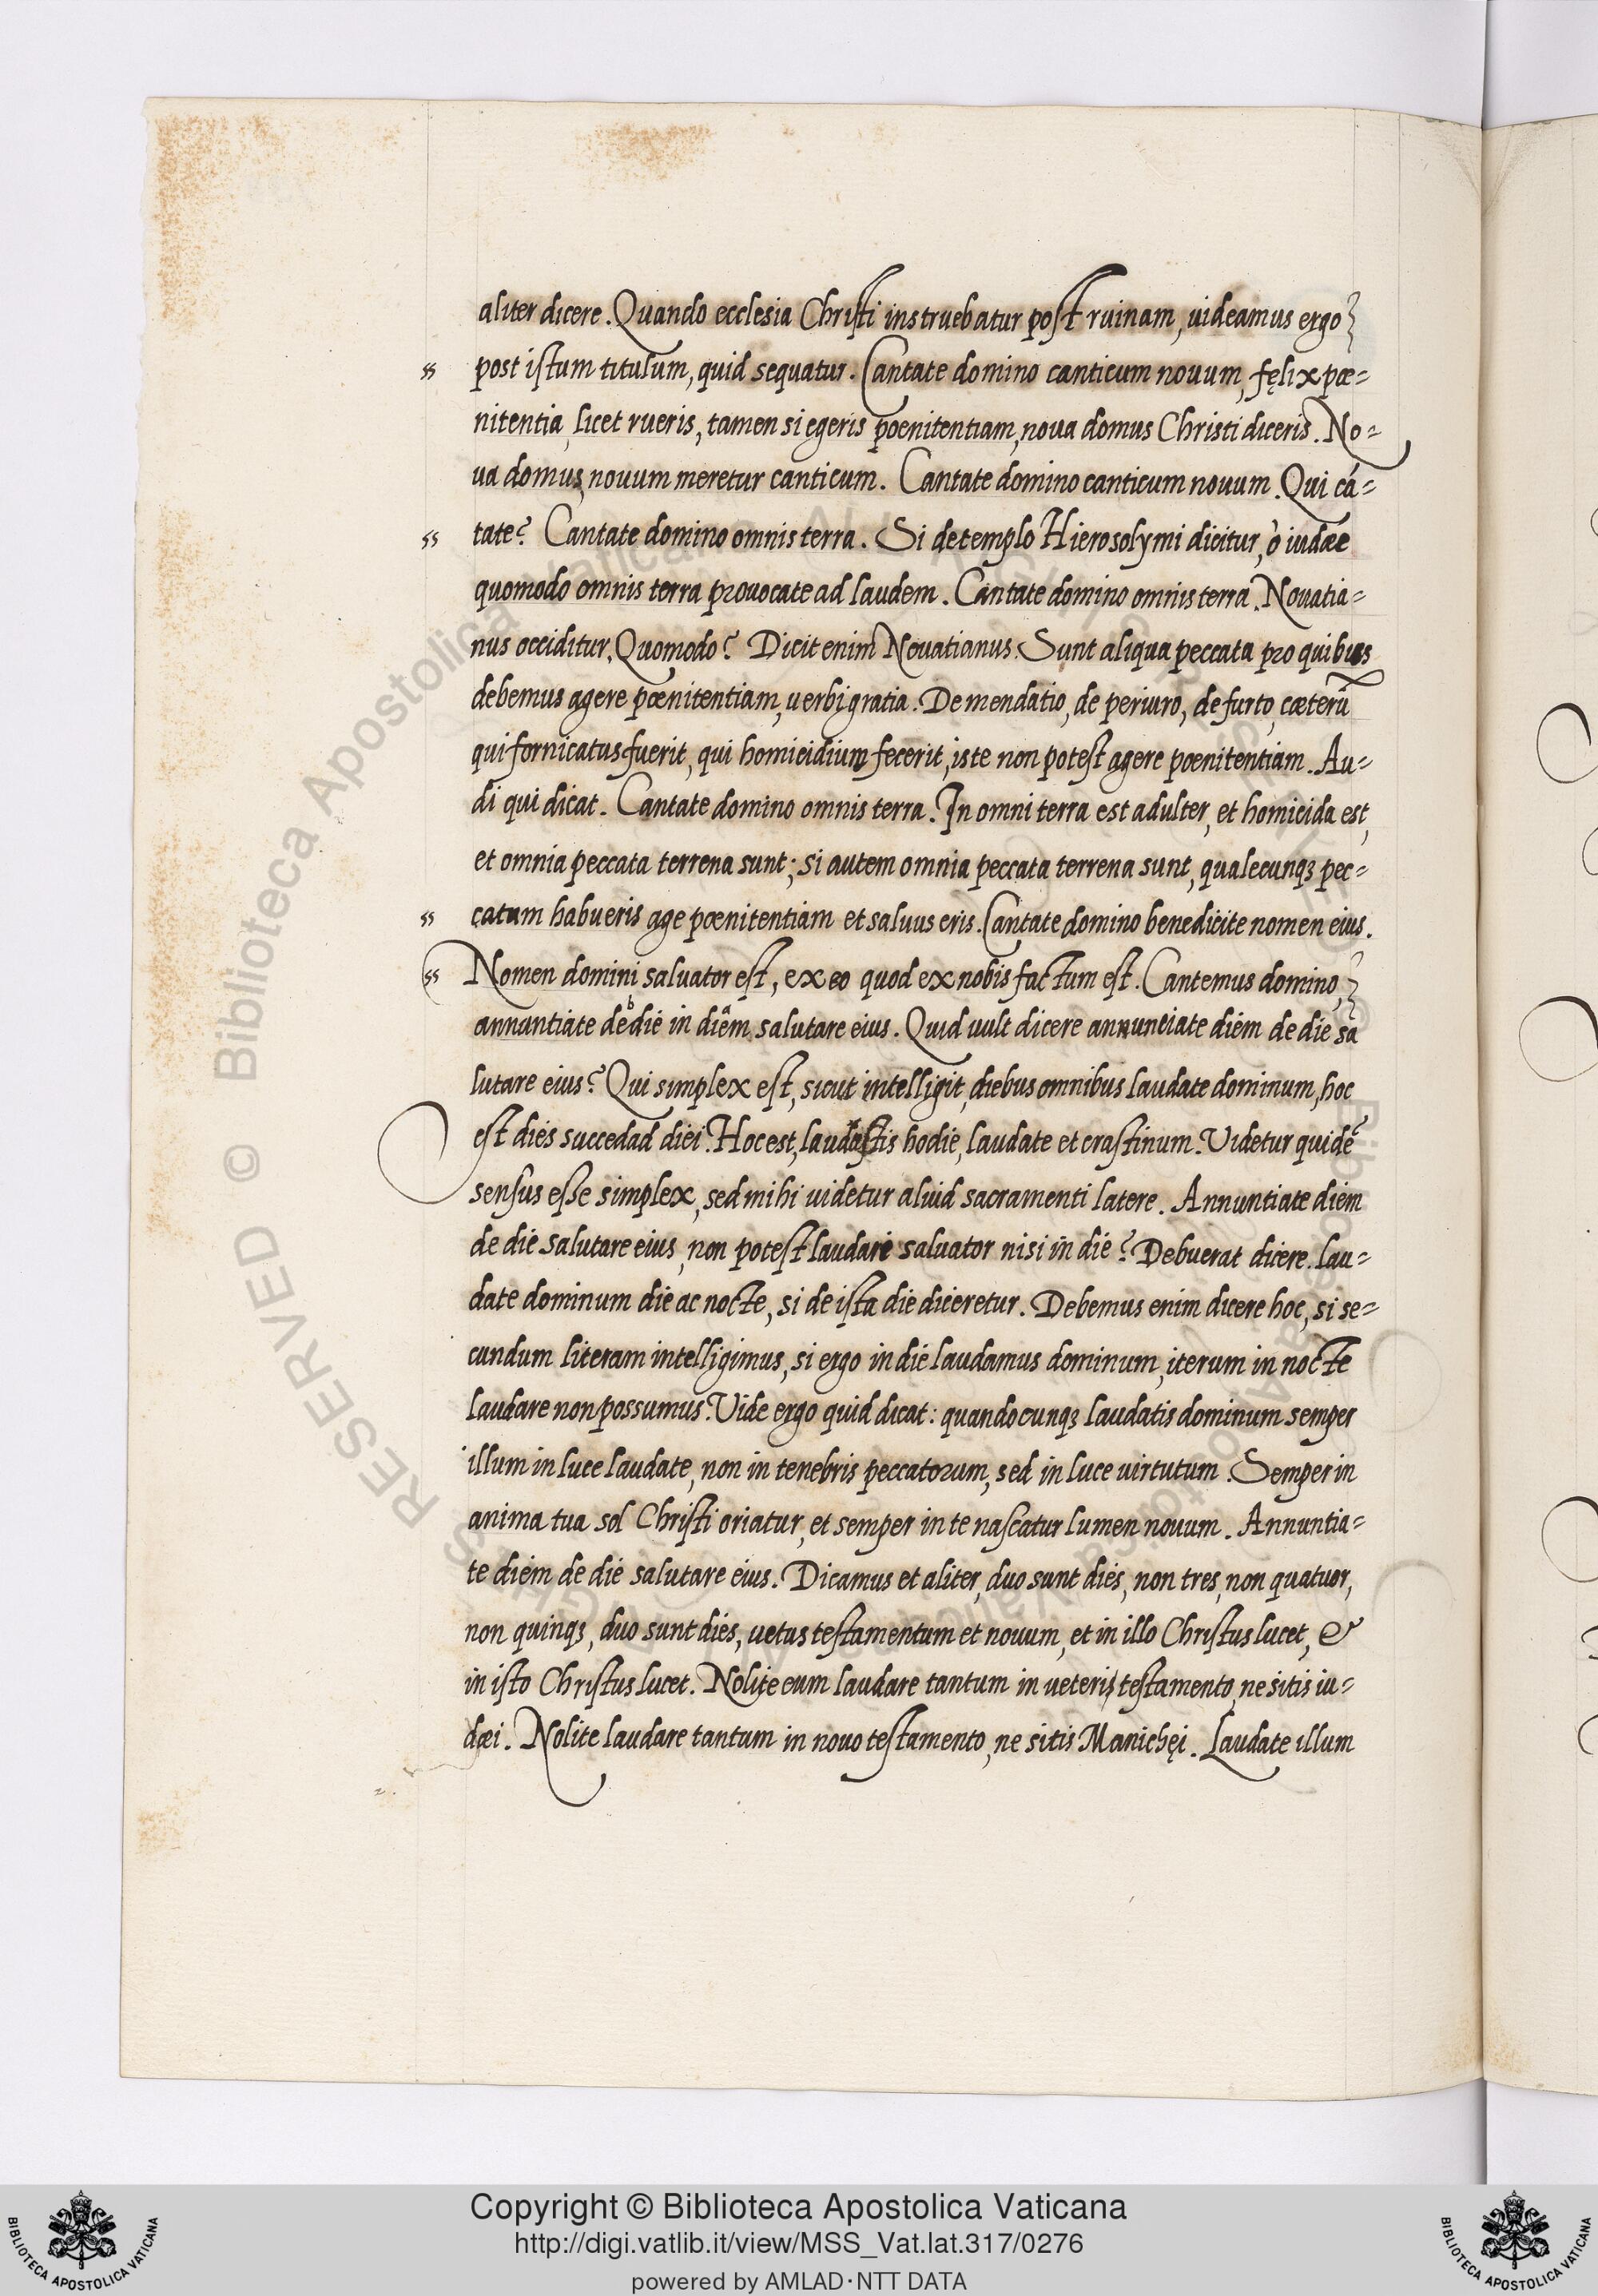 aliter dicere. Quando ecclesia Christi instruebatur post ruinam, uideamus ergo
post istum titulum, quid sequatur. Cantate domino canticum nouum, fęlix pœ=
nitentia, licet rueris, tamen si egeris poenitentiam, noua domus Christi diceris. No=
ua domus, nouum meretur canticum. Cantate domino canticum nouum. Qui cā=
tate? Cantate domino omnis terra. Si de templo Hierosolymi dicitur, ò iudæe
quomodo omnis terra prouocate ad laudem. Cantate domino omnis terra. Nouatia=
nus occiditur. Quomodo? Dicit enim Nouatianus. Sunt aliqua peccata pro quibus
debemus agere pœnitentiam, uerbi gratia. De mendatio, de periuro, de furto, cæterū
qui fornicatus fuerit, qui homicidium fecerit, iste non potest agere poenitentiam. Au=
di qui dicat. Cantate domino omnis terra. In omni terra est adulter, et homicida est,
et omnia peccata terrena sunt; si autem omnia peccata terrena sunt, qualecunqꝫ pec=
catum habueris age pœnitentiam et saluus eris. Cantate domino benedicite nomen eius.
Nomen domini saluator est, ex eo quod ex nobis factum est. Cantemus domino,
annantiate de die in diem salutare eius. Quid uult dicere annunciate diem de die sa
lutare eius? Qui simplex est, sicut intelligit, diebus omnibus laudate dominum, hoc
est dies succedad diei. Hoc est, laudastis hodie, laudate et crastinum. Videtur quidē
sensus esse simplex, sed mihi uidetur aliud sacramenti latere. Annuntiate diem
de die salutare eius, non potest laudari saluator nisi in die? Debuerat dicere. lau=
date dominum die ac nocte, si de ista die diceretur. Debemus enim dicere hoc, si se=
cundum literam intelligimus, si ergo in die laudamus dominum, iterum in nocte
laudare non possumus. Vide ergo quid dicat: quandocunqꝫ laudatis dominum semper
illum in luce laudate, non in tenebris peccatorum, sed in luce uirtutum. Semper in
anima tua sol Christi oriatur, et semper in te nascatur lumen nouum. Annuntia=
te diem de die salutare eius. Dicamus et aliter, duo sunt dies, non tres, non quatuor,
non quinqꝫ, duo sunt dies, uetus testamentum et nouum, et in illo Christus lucet, &
in isto Christus lucet. Nolite eum laudare tantum in ueteri testamento, ne sitis iu=
dæi. Nolite laudare tantum in nouo testamento, ne sitis Manichęi. Laudate illum
Copyright © Biblioteca Apostolica Vaticana
http://digi.vatlib.it/view/MSS_Vat.lat.317/0276
powered by AMLAD·NTT DATA